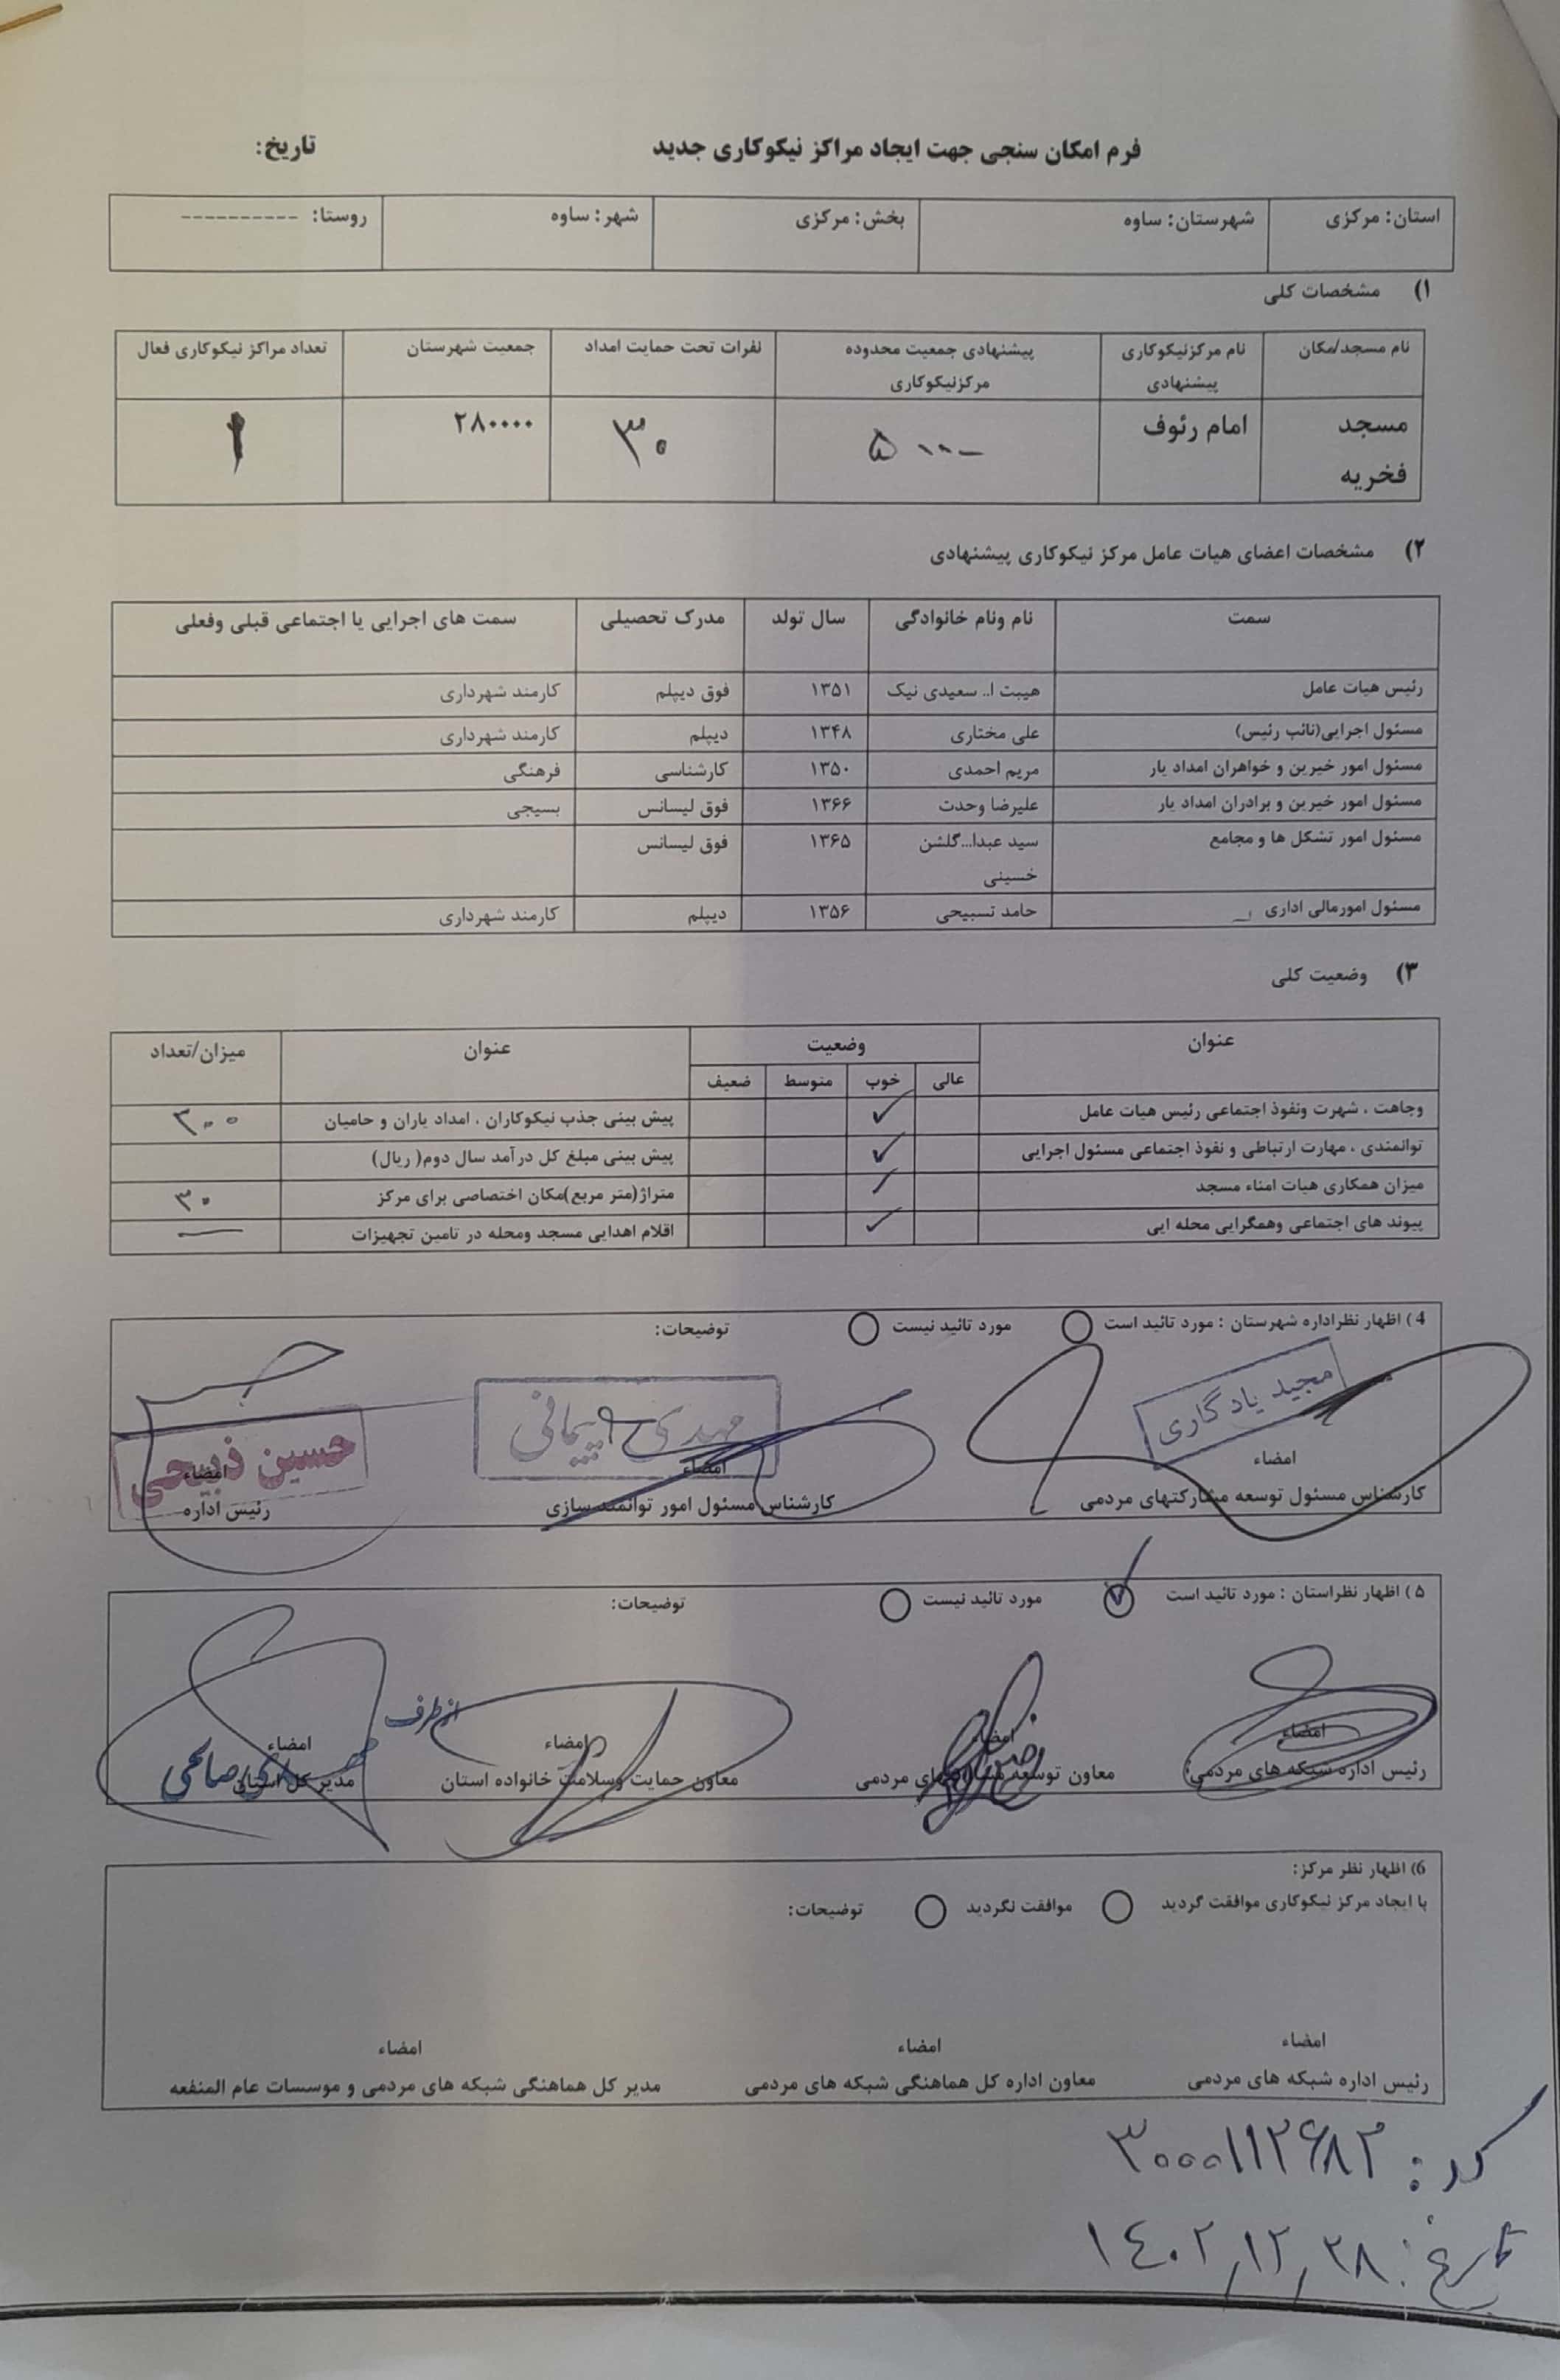 فرم امکان سنجی جهت ایجاد مراکز نیکوکاری جدید تاریخ:
استان: مرکزی شهرستان: ساوه بخش: مرکزی شهر: ساوه روستا: ----------
۱) مشخصات کلی
نام مسجد/مکان نام مرکزنیکوکاری پیشنهادی جمعیت محدوده نفرات تحت حمایت امداد جمعیت شهرستان تعداد مراکز نیکوکاری فعال
پیشنهادی مرکزنیکوکاری
مسجد امام رئوف ۵۰۰۰ ۳۰ ۲۸۰۰۰۰ ۱
فخریه
۲) مشخصات اعضای هیات عامل مرکز نیکوکاری پیشنهادی
سمت نام ونام خانوادگی سال تولد مدرک تحصیلی سمت های اجرایی یا اجتماعی قبلی وفعلی
رئیس هیات عامل هیبت ا.. سعیدی نیک ۱۳۵۱ فوق دیپلم کارمند شهرداری
مسئول اجرایی(نائب رئیس) علی مختاری ۱۳۴۸ دیپلم کارمند شهرداری
مسئول امور خیرین و خواهران امداد یار مریم احمدی ۱۳۵۰ کارشناسی فرهنگی
مسئول امور خیرین و برادران امداد یار علیرضا وحدت ۱۳۶۶ فوق لیسانس بسیجی
مسئول امور تشکل ها و مجامع سید عبدا...گلشن ۱۳۶۵ فوق لیسانس
حسینی
مسئول امورمالی اداری حامد تسبیحی ۱۳۵۶ دیپلم کارمند شهرداری
۳) وضعیت کلی
عنوان وضعیت عنوان میزان/تعداد
عالی خوب متوسط ضعیف
وجاهت ، شهرت ونفوذ اجتماعی رئیس هیات عامل ✓ پیش بینی جذب نیکوکاران ، امداد یاران و حامیان ۳۰۰
توانمندی ، مهارت ارتباطی و نفوذ اجتماعی مسئول اجرایی ✓ پیش بینی مبلغ کل درآمد سال دوم( ریال)
میزان همکاری هیات امناء مسجد ✓ متراژ(متر مربع)مکان اختصاصی برای مرکز ۳۰
پیوند های اجتماعی وهمگرایی محله ایی ✓ اقلام اهدایی مسجد ومحله در تامین تجهیزات —
4) اظهار نظراداره شهرستان : مورد تائید است مورد تائید نیست توضیحات:
مجید یادگاری مهدی پیمانی حسین ذبیحی
امضاء امضاء امضاء
کارشناس مسئول توسعه مشارکتهای مردمی کارشناس مسئول امور توانمند سازی رئیس اداره
۵) اظهار نظراستان : مورد تائید است ✓ مورد تائید نیست توضیحات:
از طرف
امضاء امضاء امضاء امضاء
رئیس اداره شبکه های مردمی معاون توسعه مشارکتهای مردمی معاون حمایت وسلامت خانواده استان مدیر کل استان
صالحی
6) اظهار نظر مرکز:
با ایجاد مرکز نیکوکاری موافقت گردید موافقت نگردید توضیحات:
امضاء امضاء امضاء
رئیس اداره شبکه های مردمی معاون اداره کل هماهنگی شبکه های مردمی مدیر کل هماهنگی شبکه های مردمی و موسسات عام المنفعه
کد: ۳۰۰۰۱۱۲۶۸۲
تاریخ: ۱۴۰۲,۱۲,۲۸